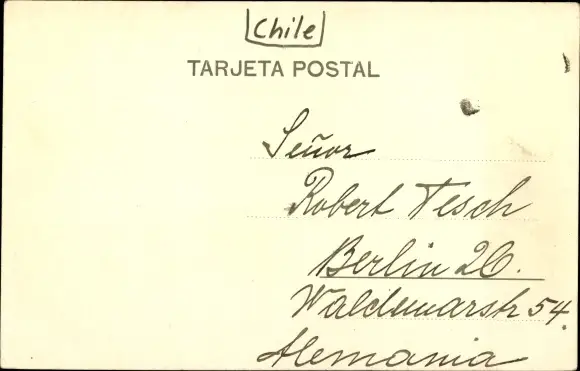 Chile
TARJETA POSTAL
Señor
Robert Tesch
Berlin 26.
Waldemarstr 54.
Alemania